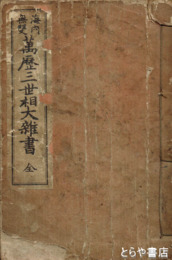 海内
無雙
萬歴三世相大雜書 全
とらや書店